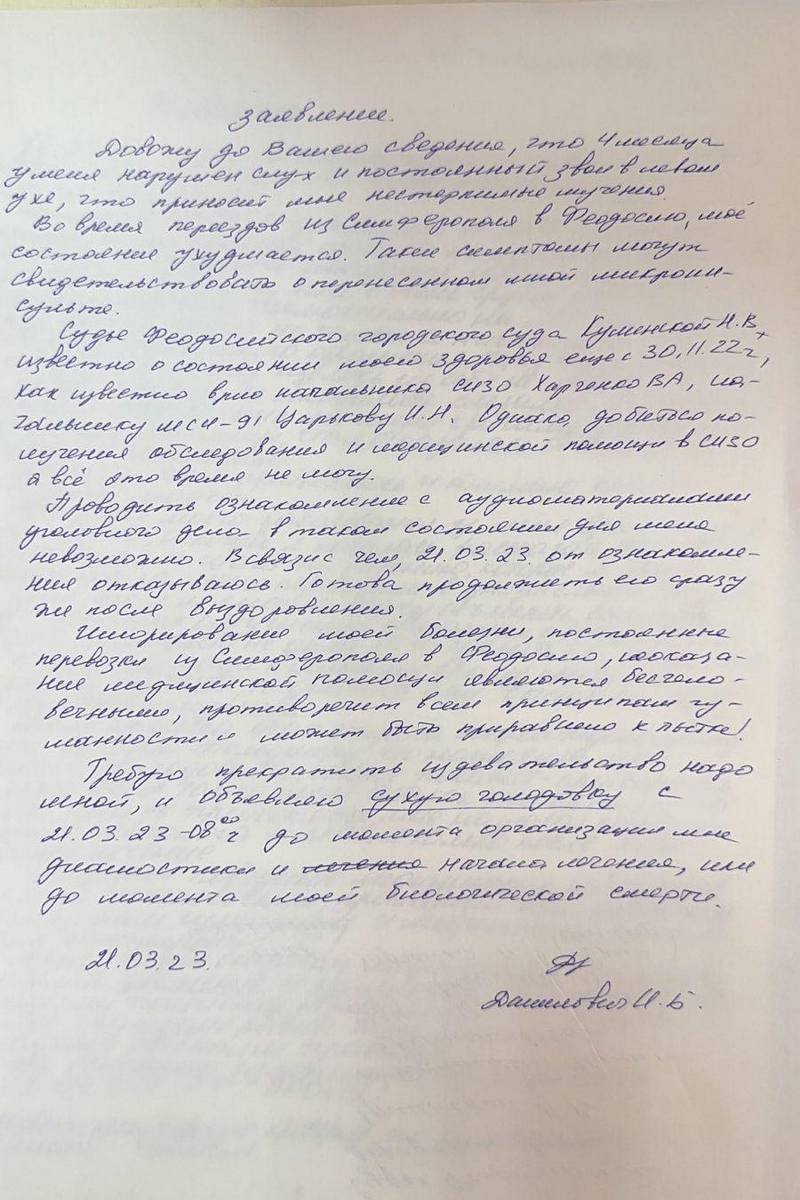 Заявление.
Довожу до Вашего сведения, что 4 месяца
у меня нарушен слух и постоянный звон в левом
ухе, что приносит мне нестерпимые мучения.
Во время переездов из Симферополя в Феодосию, моё
состояние ухудшается. Такие симптомы могут
свидетельствовать о перенесенном мной микроин-
сульте.
Судье Феодосийского городского суда Кулинской Н.В.
известно о состоянии моего здоровья еще с 30.11.22 г,
как известно врио начальника СИЗО Харченко ВА, на-
чальнику МСЧ-91 Царькову И.Н. Однако, добиться по-
лучения обследования и медицинской помощи в СИЗО
я всё это время не могу.
Проводить ознакомление с аудиоматериалами
уголовного дела в таком состоянии для меня
невозможно. В связи с чем, 21.03.23. от ознакомле-
ния отказываюсь. Готова продолжить его сразу
же после выздоровления.
Игнорирование моей болезни, постоянные
перевозки из Симферополя в Феодосию, неоказа-
ние медицинской помощи являются бесчело-
вечными, противоречит всем принципам гу-
манности и может быть приравнено к пытке!
Требую прекратить издевательство надо
мной, и объявляю сухую голодовку с
21.03.23 -08 00 ч до момента организации мне
диагностики и лечения начала лечения, или
до момента моей биологической смерти.
21.03.23.
Данилович И.Б.